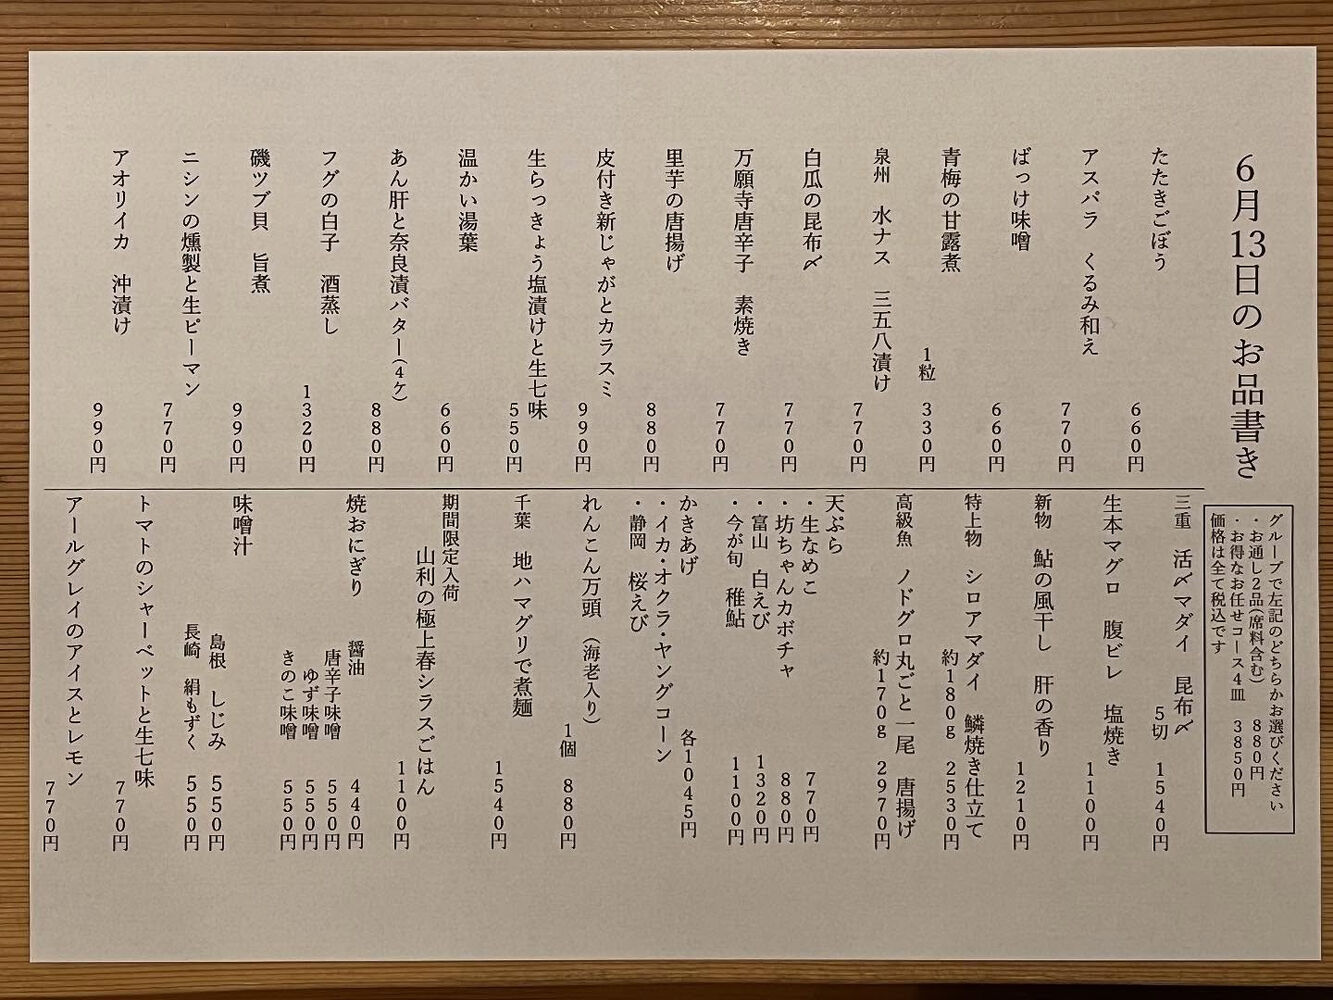 6月13日のお品書き
グループで左記のどちらかお選びください
・お通し2品(席料含む) 880円
・お得なお任せコース4皿 3850円
価格は全て税込です
たたきごぼう
660円
アスパラ くるみ和え
770円
ばっけ味噌
660円
青梅の甘露煮
1粒 330円
泉州 水ナス 三五八漬け
770円
白瓜の昆布〆
770円
万願寺唐辛子 素焼き
770円
里芋の唐揚げ
880円
皮付き新じゃがとカラスミ
990円
生らっきょう塩漬けと生七味
550円
温かい湯葉
660円
あん肝と奈良漬バター(4ケ)
880円
フグの白子 酒蒸し
1320円
磯ツブ貝 旨煮
990円
ニシンの燻製と生ピーマン
770円
アオリイカ 沖漬け
990円
三重 活〆マダイ 昆布〆
5切 1540円
生本マグロ 腹ビレ 塩焼き
1100円
新物 鮎の風干し 肝の香り
1210円
特上物 シロアマダイ 鱗焼き仕立て
約180g 2530円
高級魚 ノドグロ丸ごと一尾 唐揚げ
約170g 2970円
天ぷら
・生なめこ 770円
・坊ちゃんカボチャ 880円
・富山 白えび 1320円
・今が旬 稚鮎 1100円
かきあげ 各1045円
・イカ・オクラ・ヤングコーン
・静岡 桜えび
れんこん万頭 (海老入り)
1個 880円
千葉 地ハマグリで煮麺
1540円
期間限定入荷
山利の極上春シラスごはん
1100円
焼おにぎり 醤油 440円
唐辛子味噌 550円
ゆず味噌 550円
きのこ味噌 550円
味噌汁
島根 しじみ 550円
長崎 絹もずく 550円
トマトのシャーベットと生七味
770円
アールグレイのアイスとレモン
770円